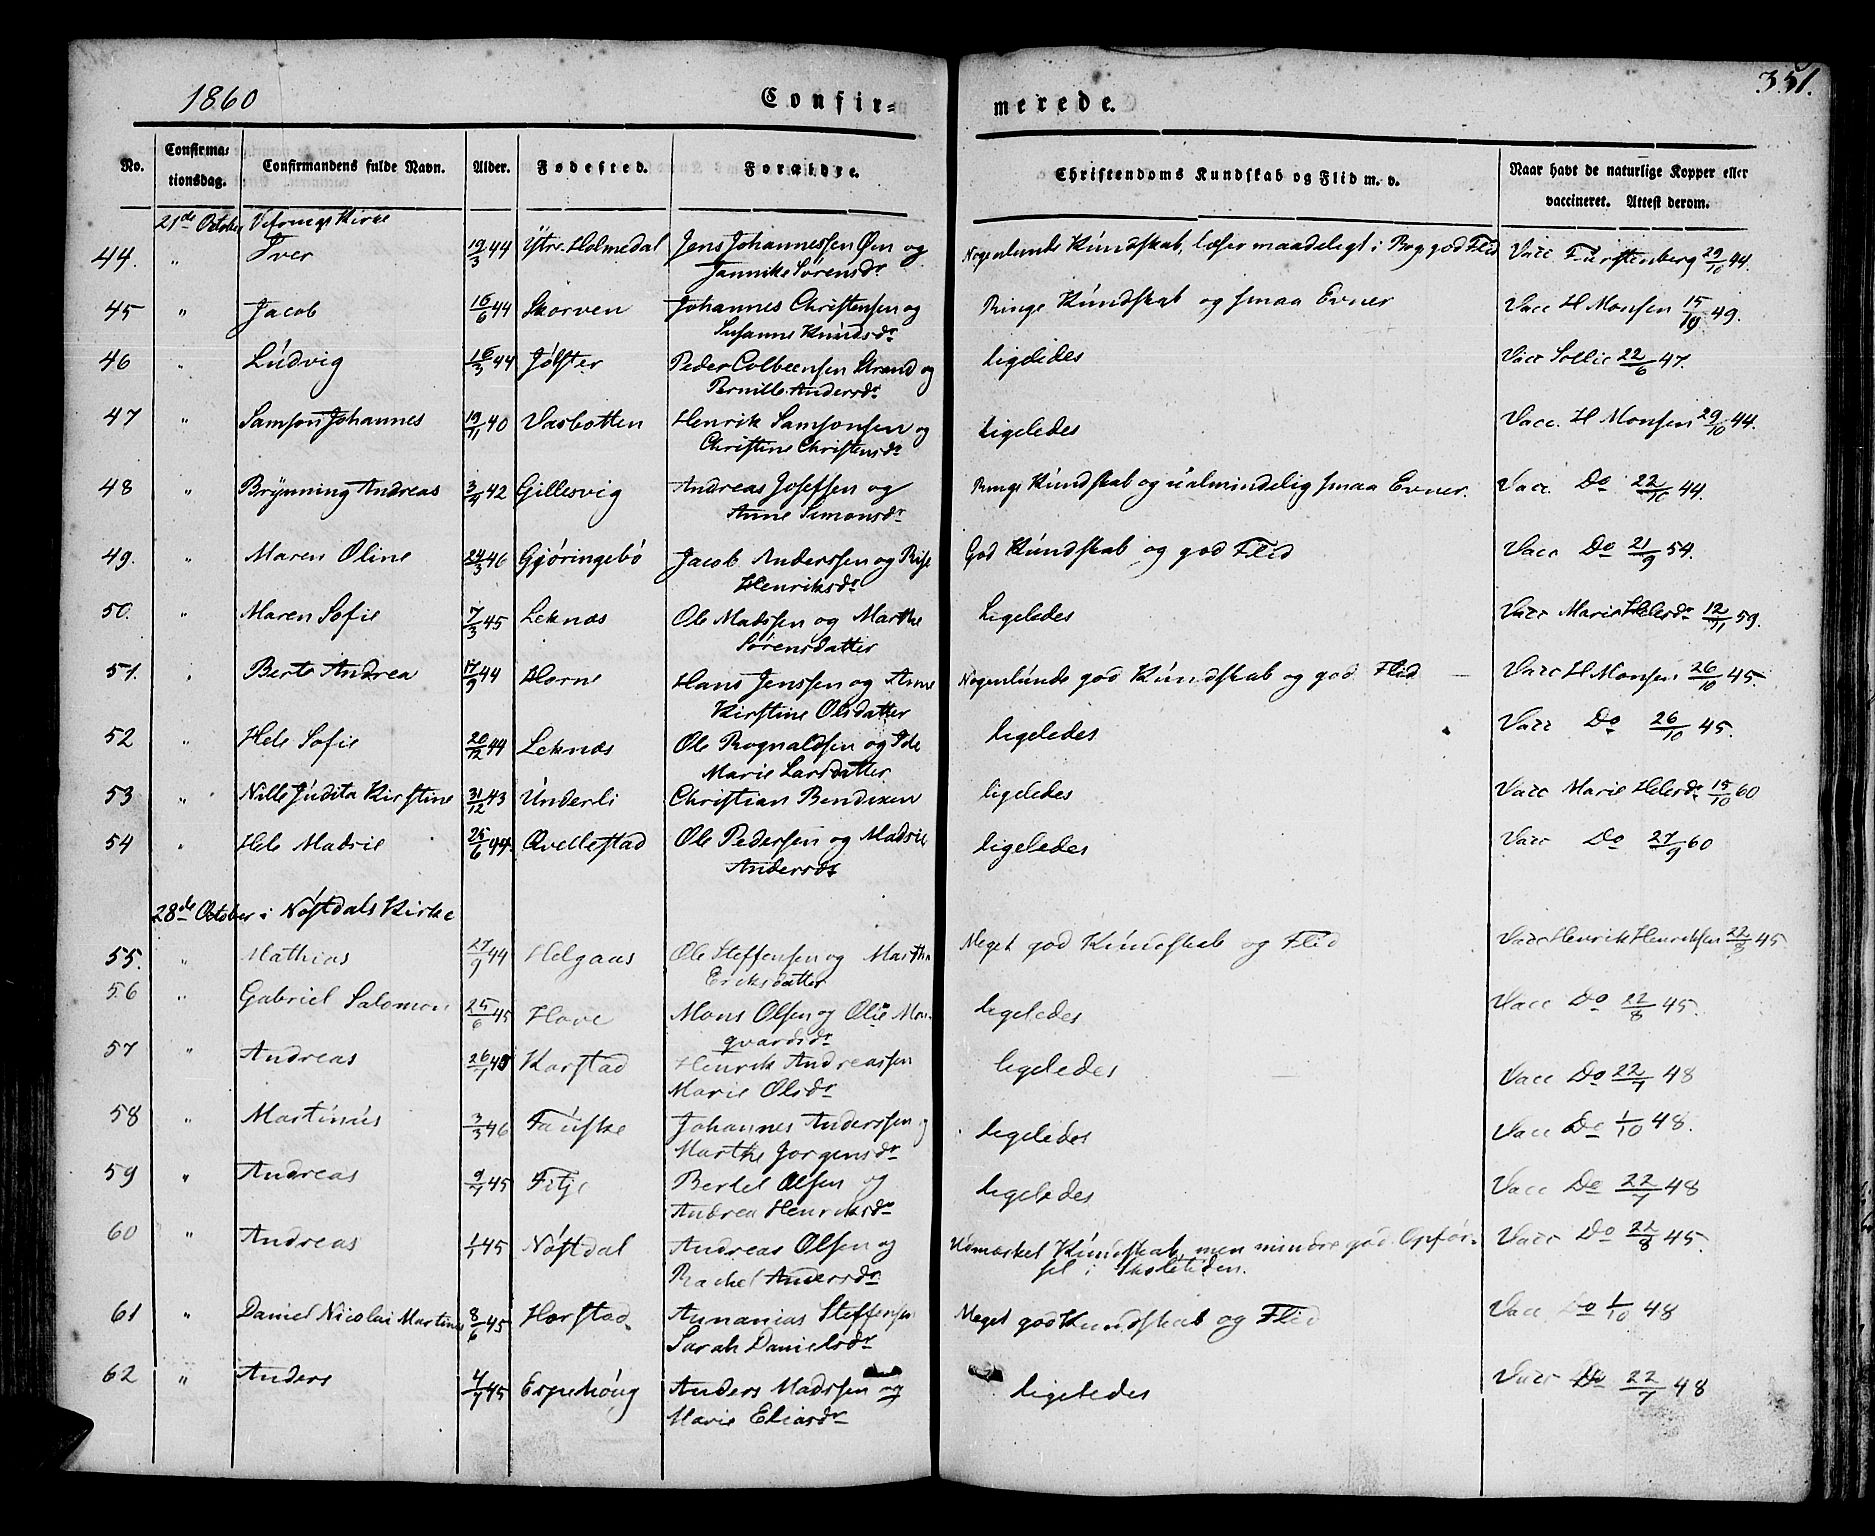 1860 Confir= merede. 351.
No. Confirma= tionsdag. Confirmandens fulde Navn. Alder. Fødested. Forældre. Christendoms Kundskab og Flid m. v. Naar havt de naturlige Kopper eller vaccineret. Attest derom.
21de October Kirke
44. " Iver 19/3 44 Ytre Holmedal Jens Johannessen Øen og Nogenlunde Kundskab, læser maadeligt i Bog god Flid Vacc Fürstenberg 29/10 44.
Jannike Sørensdr
45 " Jacob 16/6 44 Skorven Johannes Christensen og Ringe Kundskab og smaa Evner Vacc H Monsen 15/10 49.
Susanne Knudsdr
46 " Ludvig 16/3 44 Jølster Peder Colbeensen Strand og ligeledes Vacc Sollie 22/6 47.
Pernille Andersdr
47 " Samson Johannes 19/11 40 Vasbotten Henrik Samsonsen og ligeledes Vacc. H Monsen 29/10 44.
Christine Christensdr
48 " Brynning Andreas 3/4 42 Gillesvig Andreas Josefsen og Ringe Kundskab og ualmindelig smaa Evner. Vacc. Do 22/10 44.
Anne Simonsdr
49. " Maren Oline 24/3 46 Gjøringebø Jacob Anderssen og God Kundskab og god Flid Vacc Do 21/9 54.
Henriksdr
50. " Maren Sofie 7/3 45 Leknæs Ole Madssen og Marthe Ligeledes Vacc Marie Helesdr 12/11 59.
Sørensdatter
51. " Berte Andrea 17/9 44 Horne Hans Jenssen og Anne Nogenlunde god Kundskab og god Flid Vacc H Monsen 26/10 45.
Kirstine Olsdatter
52 " Hele Sofie 20/12 44 Leknæs Ole Rognaldsen og Ide ligeledes Vacc Do 26/10 45.
Marie Larsdatter
53 " Nille Judita Kirstine 31/12 43 Underli Christian Bendixen ligeledes Vacc Marie Helesdr 15/10 60
54 " Hele Madsie 25/6 44. Qvellestad Ole Pedersen og Madsie ligeledes Vacc Do 27/9 60
Andersdr
28de October i Nøstdals Kirke
55. " Mathias 27/9 44 Helgaas Ole Steffensen og Marthe Meget god Kundskab og Flid Vacc Henrik Henriksen 22/8 45
Eriksdatter
56 " Gabriel Salomon 25/6 45 Hove Mons Olsen og Olie Mon- ligeledes Vacc Do 22/8 45.
qvardsdr
57 " Andreas 26/1 Karstad Henrik Andreassen ligeledes Vacc Do 22/1 48
Marie Olsdr
58 " Martinus 3/3 46 Fauske Johannes Anderssen og ligeledes Vacc Do 1/10 48.
Marthe Jorgensdr
59 " Andreas 9/7 45 Fitje Bertel Olsen og ligeledes Vacc Do 22/1 48
Andrea Henriksdr
60 " Andreas 1/1 45 Nøstdal Andreas Olsen og Udmærket Kundskab, men mindre god Opfør- Vacc Do 22/8 45.
Rachel Andersdr sel i Skoletiden.
61 " Daniel Nicolai Martinus 8/6 45 Horstad Annanias Steffensen Meget god Kundskab og Flid Vacc Do 1/10 48
Sarah Danielsdr
62 " Anders 4/7 45 Espehoug Anders Madssen og ligeledes Vacc Do 22/1 48
Marie Eliasdr